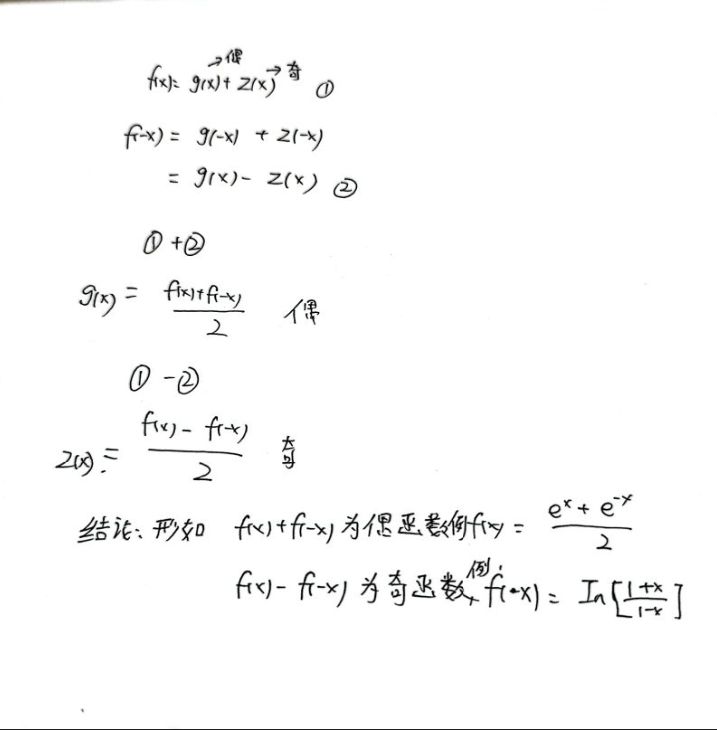 →偶 →奇
f(x)= g(x)+ z(x) ①
f(-x) = g(-x) + z(-x)
= g(x) - z(x) ②
① + ②
g(x) = \frac{f(x)+f(-x)}{2} 偶
① - ②
z(x) = \frac{f(x) - f(-x)}{2} 奇
结论: 形如 f(x)+f(-x) 为偶函数例f(x) = \frac{e^x + e^{-x}}{2}
f(x) - f(-x) 为奇函数, 例: f(x) = In[\frac{1+x}{1-x}]